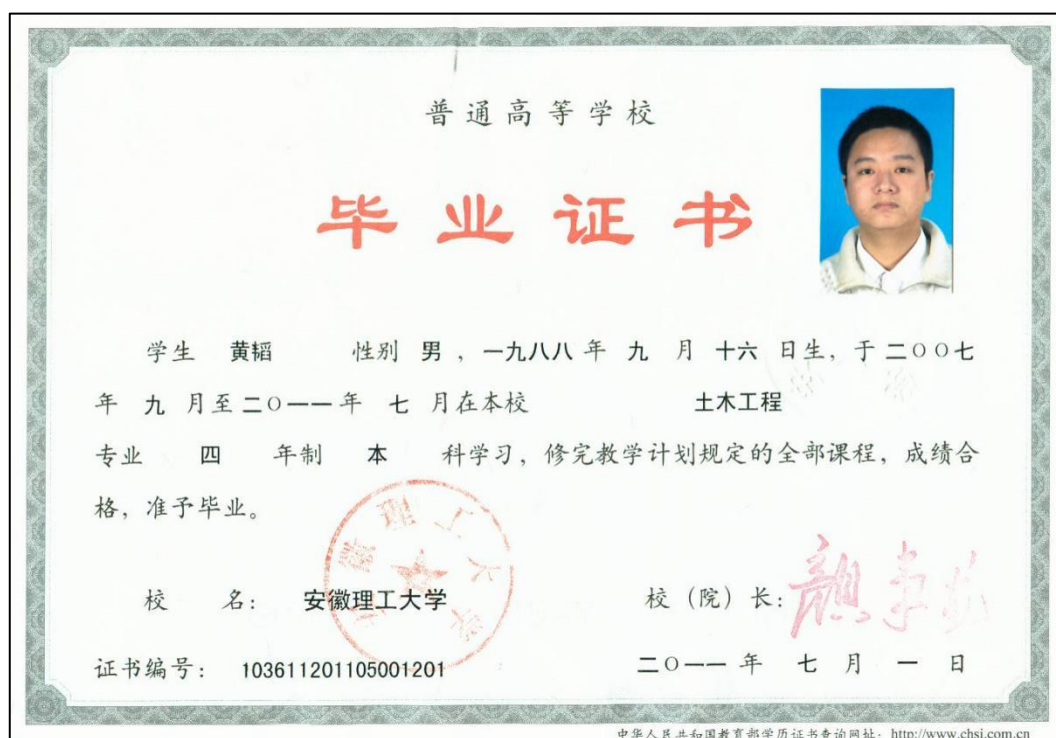 普通高等学校
毕业证书
学生 黄韬 性别 男 ,一九八八 年 九 月 十六 日生,于 二〇〇七
年 九 月至 二〇一一 年 七 月在本校 土木工程
专业 四 年制 本 科学习,修完教学计划规定的全部课程,成绩合
格,准予毕业。
安徽理工大学
校 名: 安徽理工大学 校(院)长:
证书编号: 103611201105001201 二〇一一 年 七 月 一 日
中华人民共和国教育部学历证书查询网址:http://www.chsi.com.cn